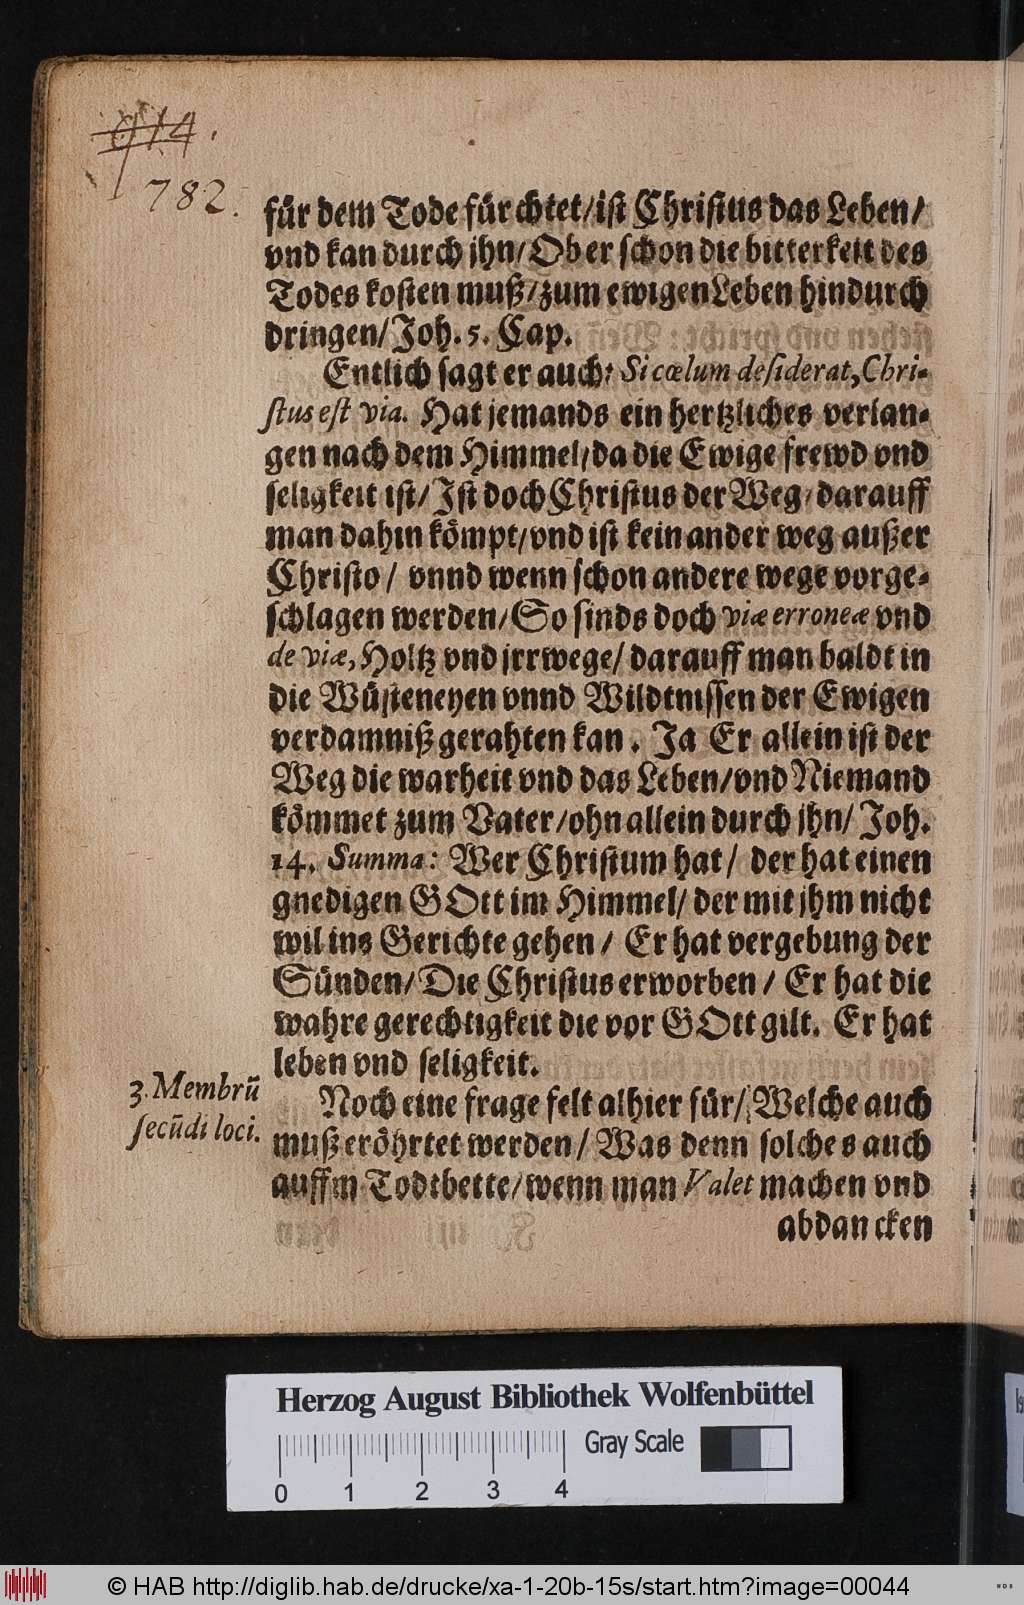 914.
782.
für dem Tode fürchtet/ ist Christus das Leben/
vnd kan durch jhn/ Ob er schon die bitterkeit des
Todes kosten muß/ zum ewigen Leben hindurch
dringen/ Joh. 5. Cap.
Entlich sagt er auch: Si cœlum desiderat, Chri-
stus est via. Hat jemands ein hertzliches verlan-
gen nach dem Himmel/ da die Ewige frewd vnd
seligkeit ist/ Ist doch Christus der Weg/ darauff
man dahin kömpt/ vnd ist kein ander weg außer
Christo/ vnnd wenn schon andere wege vorge-
schlagen werden/ So sinds doch viæ erroneæ vnd
de viæ, Holtz vnd jrrwege/ darauff man baldt in
die Wüsteneyen vnnd Wildtnissen der Ewigen
verdamniß gerahten kan. Ja Er allein ist der
Weg die warheit vnd das Leben/ vnd Niemand
kömmet zum Vater/ ohn allein durch jhn/ Joh.
14. Summa: Wer Christum hat/ der hat einen
gnedigen GOtt im Himmel/ der mit jhm nicht
wil ins Gerichte gehen/ Er hat vergebung der
Sünden/ Die Christus erworben/ Er hat die
wahre gerechtigkeit die vor GOtt gilt. Er hat
leben vnd seligkeit.
3. Membrũ
secũdi loci.
Noch eine frage felt alhier für/ Welche auch
muß eröhrtet werden/ Was denn solches auch
auffm Todtbette/ wenn man Valet machen vnd
abdancken
Herzog August Bibliothek Wolfenbüttel
Gray Scale
0 1 2 3 4
© HAB http://diglib.hab.de/drucke/xa-1-20b-15s/start.htm?image=00044